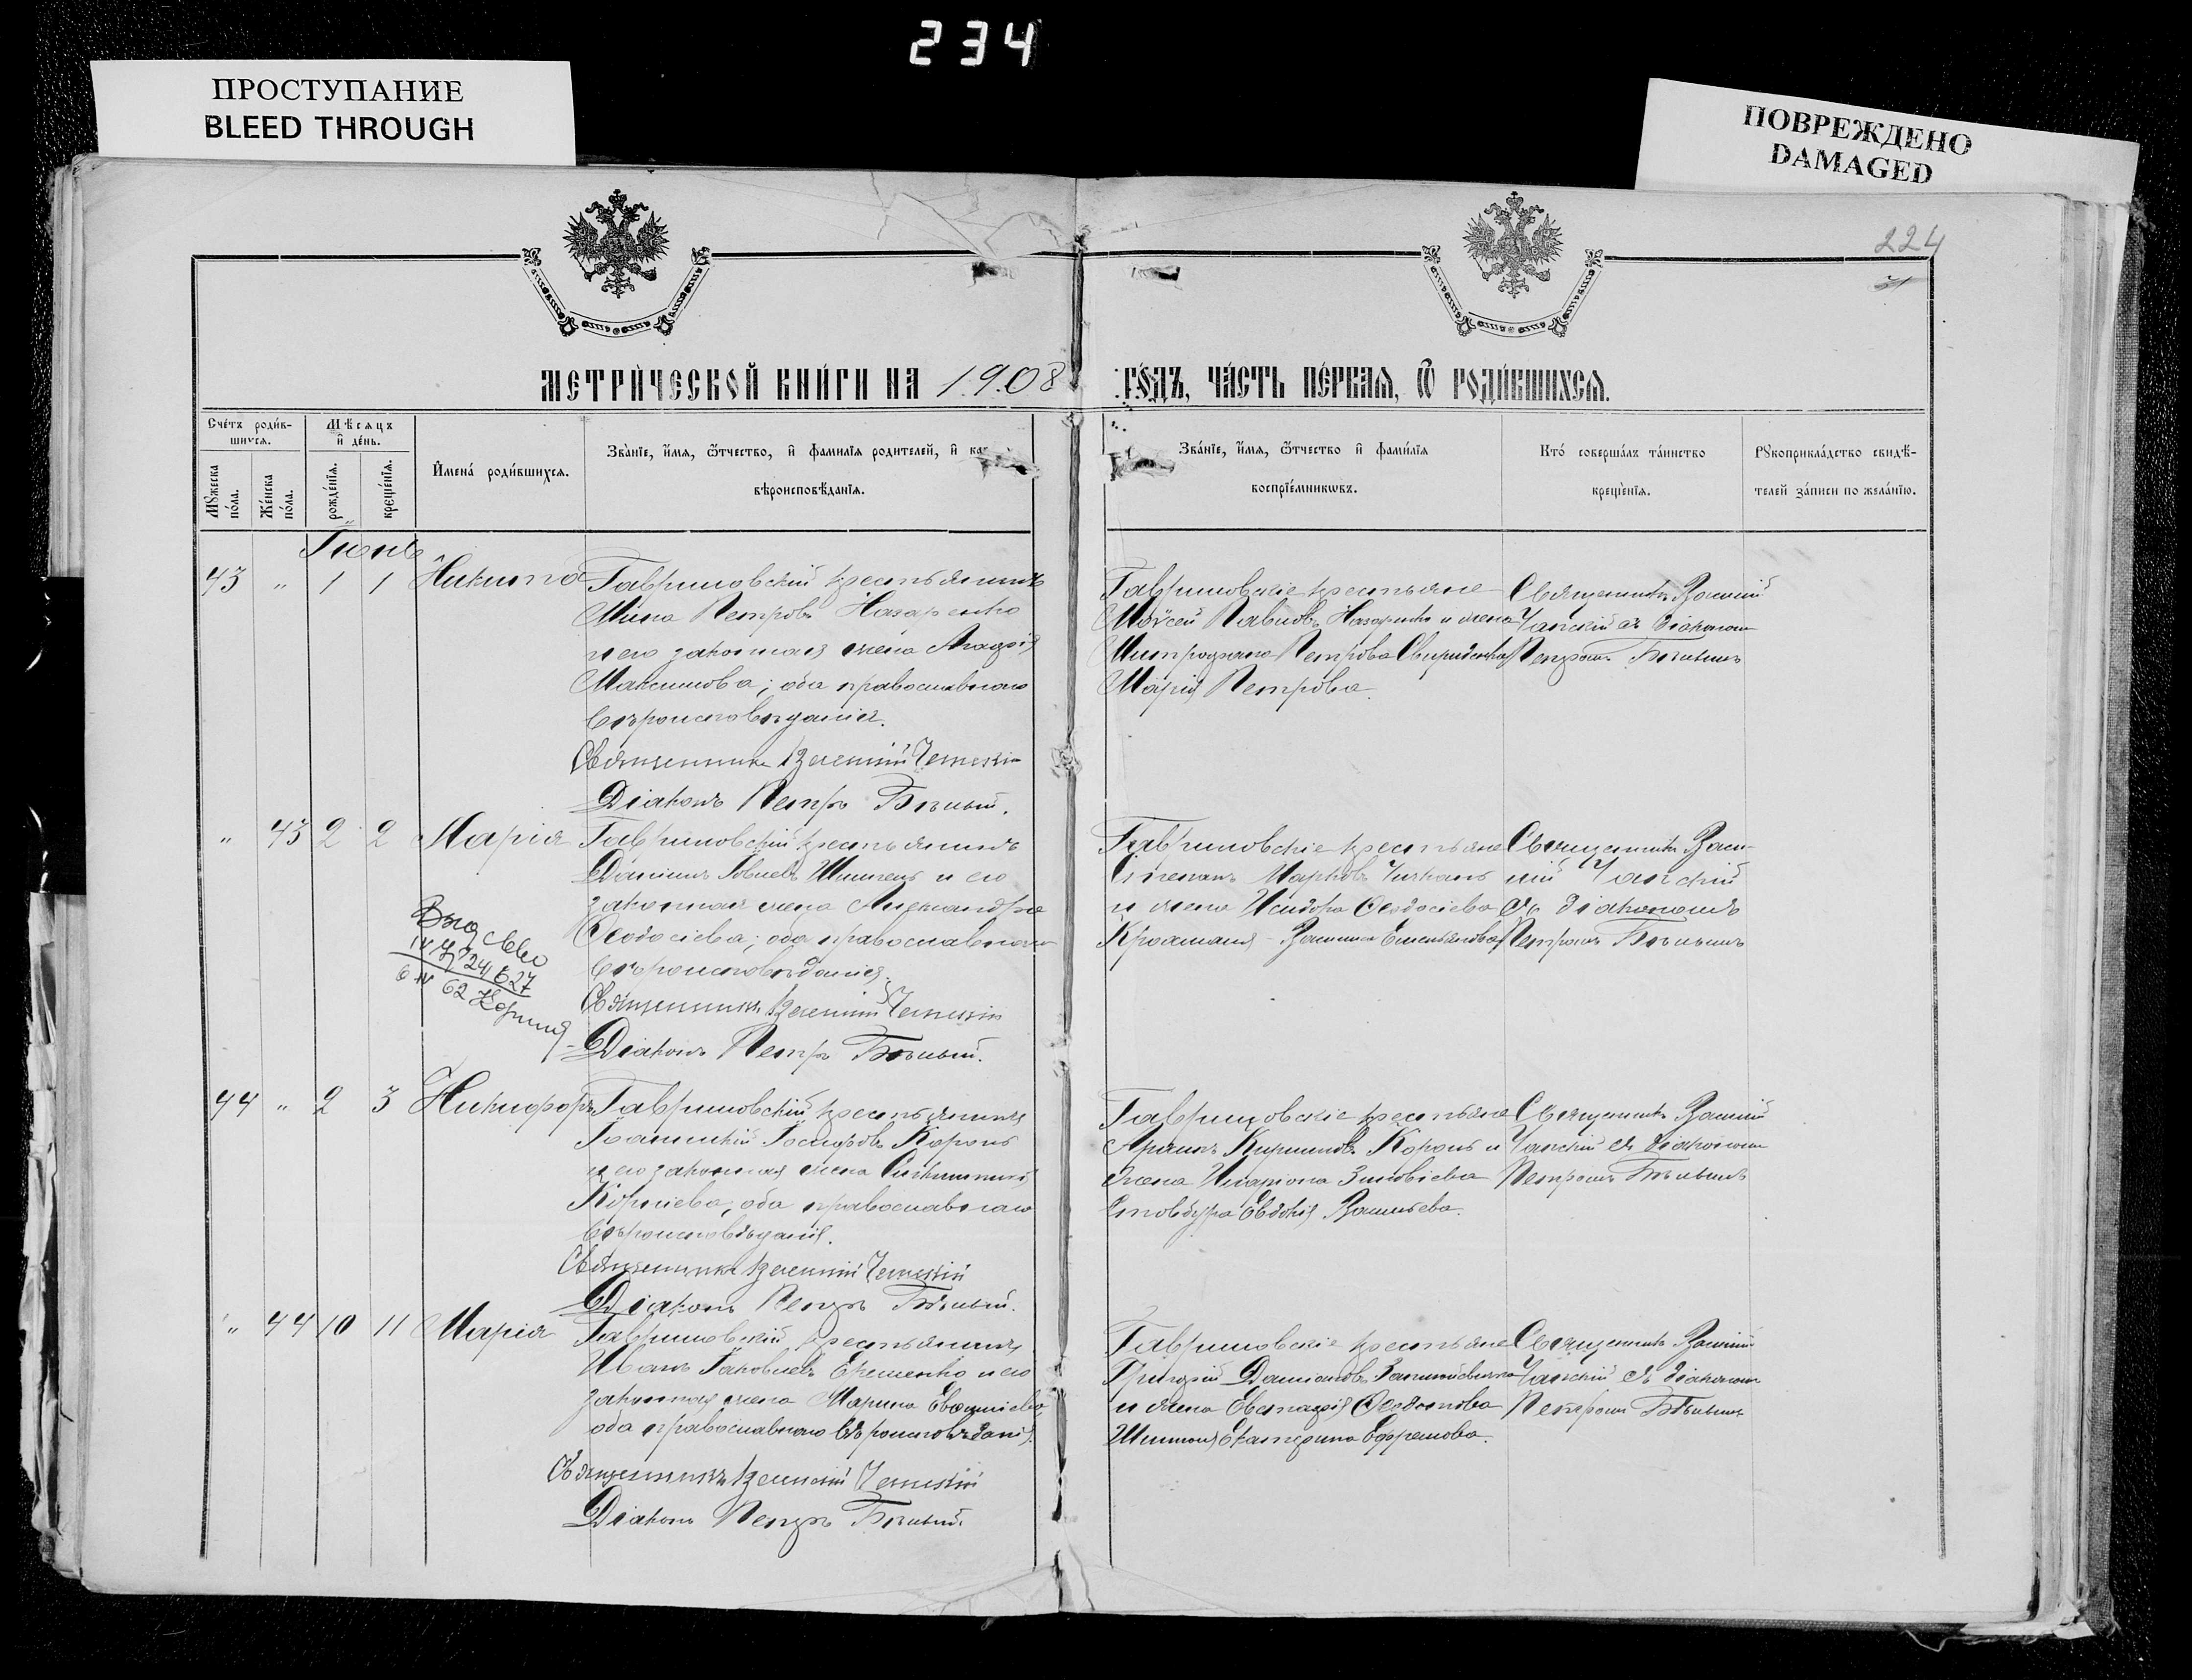 234
ПРОСТУПАНИЕ
BLEED THROUGH
ПОВРЕЖДЕНО
DAMAGED
224
МЕТРИ́ЧЕСКОЙ КНИ́ГИ НА 1908 ГО́ДЪ, ЧА́СТЬ ПЕ́РВАЯ, Ѿ РОДИ́ВШИХСЯ.
Сче́тъ роди́в-
шихся.
Мѣсяцъ
и́ де́нь.
Мꙋжеска
по́ла.
Же́нска
по́ла.
рожде́нїя.
креще́нїя.
И҆мена́ роди́вшихся.
Зва́нїе, и҆́мя, ѻ҆́тчество, и҆ фамилїя родителей, и҆ ка
вѣроисповѣ́данїя.
Зва́нїе, и҆́мя, ѻ҆́тчество и҆ фами́лїя
воспрїе́мникѡвъ.
Кто́ соверша́лъ та́инство
креще́нїя.
Рꙋкоприкла́дство свидѣ́-
телей за́писи по жела́нїю.
Іюнь
43 " 1 1 Никита
Гавриловскій крестьянинъ
Мина Петровъ Назаренко
и его законная жена Агафія
Максимова; оба православнаго
вѣроисповѣданія.
Священникъ
Діаконъ Петръ Бѣлый.
Гавриловскіе крестьяне
Моѵсей Павловъ Назаренко и жена
Митрофана Петрова Свириденка
Марія Петрова.
Священникъ Василій
Чайскій съ діакономъ
Петромъ Бѣлымъ
" 43 2 2 Марія
Гавриловскій крестьянинъ
Даніилъ Іовлевъ Шинкаль и его
законная жена Александра
Ѳеодосіева; оба православнаго
вѣроисповѣданія.
Священникъ
Діаконъ Петръ Бѣлый.
Выд св-во
24/ 27
62
Гавриловскіе крестьяне
Стефанъ Марковъ
и жена Исидора Ѳеодосіева
Василиса Емельянова
Священникъ Васи-
лій Чайскій
съ діакономъ
Петромъ Бѣлымъ
44 " 2 3 Никифоръ
Гавриловскій крестьянинъ
Іоанникій Іосифовъ Король
и его законная жена
Корніева, оба православнаго
вѣроисповѣданія.
Священникъ
Діаконъ Петръ Бѣлый.
Гавриловскіе крестьяне
Кирилловъ Король и
жена Иларіона Зиновіева
Стовбура Евдокія Васильева.
Священникъ Василій
Чайскій съ діакономъ
Петромъ Бѣлымъ
" 44 10 11 Марія
Гавриловскій крестьянинъ
Иванъ Іаковлевъ Еременко и его
законная жена Марина Евѳиміева
оба православнаго вѣроисповѣданія.
Священникъ
Діаконъ Петръ Бѣлый.
Гавриловскіе крестьяне
Григорій Даміановъ
и жена Евстафія Ѳеодотова
Екатерина Ефремова.
Священникъ Василій
Чайскій съ діакономъ
Петромъ Бѣлымъ